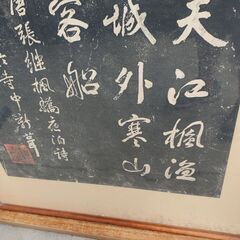 天江楓漁
城外寒山
客船
唐張継楓橋夜泊詩
寺中新葺